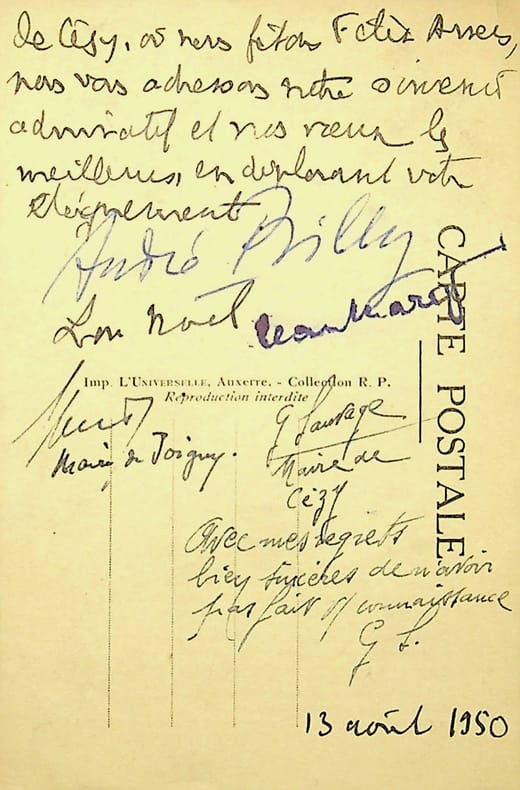 de Cézy, où nous fêtons Félix Arvers,
nous vous adressons notre souvenir
admiratif et nos vœux les
meilleurs, en déplorant votre
éloignement
André Billy
Léon Noël Jean Marot
CARTE POSTALE
Imp. L'Universelle, Auxerre. - Collection R. P.
Reproduction interdite
Maire de Joigny.
G Sauvage
Maire de
Cézy
Avec mes regrets
bien sincères de n'avoir
pas fait connaissance
G S.
13 août 1950